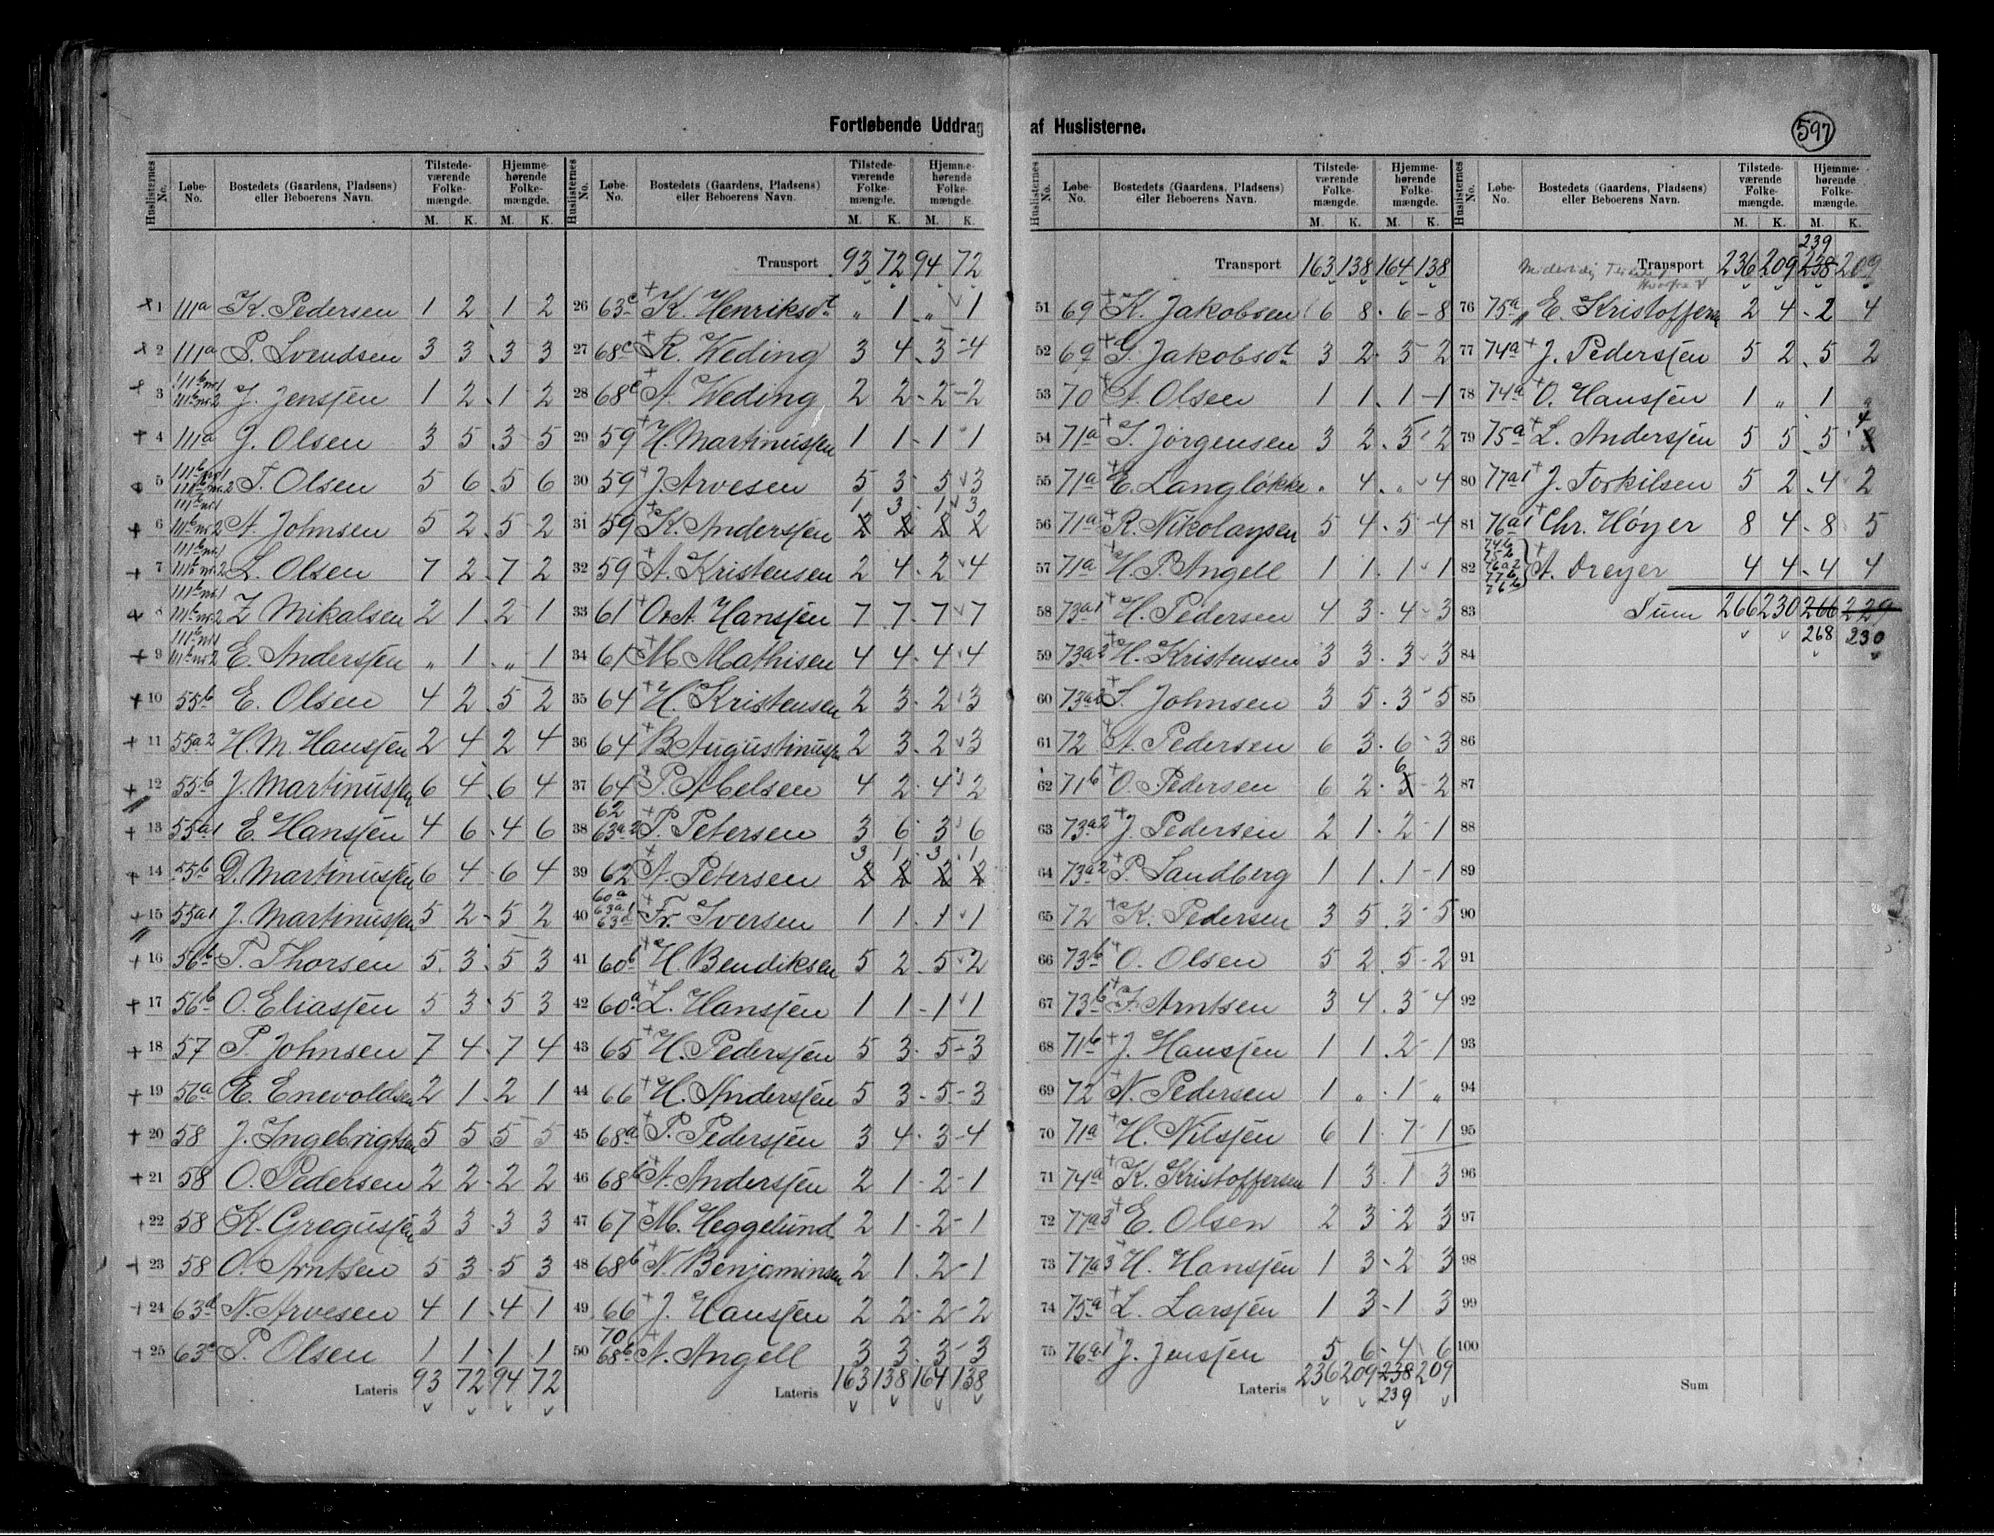 597
Fortløbende Uddrag af Huslisterne.
Huslisternes No. Løbe-No. Bostedets (Gaardens, Pladsens) eller Beboerens Navn. Tilstedeværende Folkemængde. M. K. Hjemmehørende Folkemængde. M. K.
1 111a K. Pedersen 1 2 1 2
2 111a P. Svendsen 3 3 3 3
3 111b nr. 1 111b nr. 2 J. Jensjen 1 2 1 2
4 111a J. Olsen 3 5 3 5
5 111b nr. 1 111b nr. 2 T. Olsen 5 6 5 6
6 111b nr. 1 111b nr. 2 A. Johnsen 5 2 5 2
7 111b nr. 1 111b nr. 2 L. Olsen 7 2 7 2
8 111b nr. 1 111b nr. 2 Z Mikalsen 2 1 2 1
9 111b nr. 1 111b nr. 2 E. Andersjen „ 1 „ 1
10 55b E. Olsen 4 2 5 2
11 55a2 H. M. Hansjen 2 4 2 4
12 55b J. Martinussen 6 4 6 4
13 55a1 E. Hansjen 4 6 4 6
14 55b D. Martinussen 6 4 6 4
15 55a1 J. Martinussen 5 2 5 2
16 56b P. Thorsen 5 3 5 3
17 56b O. Eliasjen 5 3 5 3
18 57 P. Johnsen 7 4 7 4
19 56a E. Enevoldsen 2 1 2 1
20 58 J. Ingebrigtsen 5 5 5 5
21 58 O. Pedersen 2 2 2 2
22 58 K. Gregusjen 3 3 3 3
23 58 O. Arntsen 5 3 5 3
24 63d N. Arvesen 4 1 4 1
25 63e P. Olsen 1 1 1 1
Lateris 93 72 94 72
Huslisternes No. Løbe-No. Bostedets (Gaardens, Pladsens) eller Beboerens Navn. Tilstedeværende Folkemængde. M. K. Hjemmehørende Folkemængde. M. K.
Transport 93 72 94 72
26 63c K. Henriksdt „ 1 „ 1
27 68c R. Weding 3 4 3 4
28 68c A. Weding 2 2 2 2
29 59 H. Martinussen 1 1 1 1
30 59 J. Arvesen 5 3 5 3
1 3 1 3
31 59 K. Andersjen 2 2 2 2
32 59 A. Kristensen 2 4 2 4
33 61 O. A. Hansjen 7 7 7 7
34 61 M. Mathisen 4 4 4 4
35 64 H. Kristensen 2 3 2 3
36 64 B. Augustinussen 2 3 2 3
37 64 P. Abelsen 4 2 4 2
38 62 63a2 P. Petersen 3 6 3 6
3 1 3 1
39 62 A. Petersen 2 2 2 2
40 60a 63a1 63d Fr. Iversen 1 1 1 1
41 60b H. Bendiksen 5 2 5 2
42 60a L. Hansjen 1 1 1 1
43 65 H. Pedersjen 5 3 5 3
44 66 H. Andersjen 5 3 5 3
45 68a P. Pedersjen 3 4 3 4
46 68b A. Andersjen 2 1 2 1
47 67 M. Heggelund 2 1 2 1
48 68b N. Benjaminsen 2 1 2 1
49 66 J. Hansjen 2 2 2 2
50 70 68b A. Angell 3 3 3 3
Lateris 163 138 164 138
Huslisternes No. Løbe-No. Bostedets (Gaardens, Pladsens) eller Beboerens Navn. Tilstedeværende Folkemængde. M. K. Hjemmehørende Folkemængde. M. K.
Transport 163 138 164 138
51 69 K. Jakobsen 6 8 6 8
52 69 G. Jakobsdt 3 2 3 2
53 70 A. Olsen 1 1 1 1
54 71a J. Jørgensen 3 2 3 2
55 71a E. Langløkke „ 4 „ 4
56 71a R. Nikolaysen 5 4 5 4
57 71a H. P. Angell 1 1 1 1
58 73a1 H. Pedersen 4 3 4 3
59 73a2 H. Kristensen 3 3 3 3
60 73a2 S. Johnsen 3 5 3 5
61 72 A. Pedersen 6 3 6 3
62 71b O. Pedersen 6 2 5 6 2
63 73a2 J. Pedersen 2 1 2 1
64 73a2 P. Sandberg 1 1 1 1
65 72 K. Pedersen 3 5 3 5
66 73b O. Olsen 5 2 5 2
67 73b J. Arntsen 3 4 3 4
68 71b J. Hansjen 1 1 2 1
69 72 N. Pedersen 1 „ 1 „
70 71a H. Nilsjen 6 1 7 1
71 74a K. Kristoffersen 1 3 1 3
72 77a3 E. Olsen 2 3 2 3
73 77a3 H. Hansjen 1 3 2 3
74 75a L. Larsjen 1 3 1 3
75 76a1 J. Jensjen 5 6 4 6
Lateris 236 209 238 209
239
Huslisternes No. Løbe-No. Bostedets (Gaardens, Pladsens) eller Beboerens Navn. Tilstedeværende Folkemængde. M. K. Hjemmehørende Folkemængde. M. K.
239
Transport 236 209 238 209
76 75a E. Kristoffersen 2 4 2 4
77 74a J. Pedersjen 5 2 5 2
78 74a O. Hansjen 1 „ 1 „
79 75a L. Andersjen 5 5 5 3 4
80 77a1 J. Torkilsen 5 2 4 2
81 76a1 Chr. Høyer 8 4 8 5
82 74b 75b 76a2 77b 76b A. Dreyer 4 4 4 4
83 Sum 266 230 266 229
268 230
84
85
86
87
88
89
90
91
92
93
94
95
96
97
98
99
100
Sum